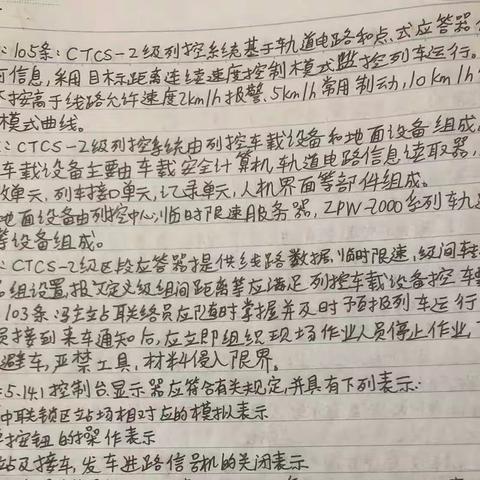 :105条:CTCS-2级列控系统基于轨道电路和点式应答器
信息,采用目标距离连续速度控制模式监控列车运行。
控高于线路允许速度2km/h报警、5km/h常用制动,10km/h
模式曲线。
:CTCS-2级列控系统由列控车载设备和地面设备组成。
车载设备主要由车载安全计算机,轨道电路信息读取器,
单元,列车接口单元,记录单元,人机界面等部件组成。
地面设备由列控中心,临时限速服务器,ZPW-2000系列轨
等设备组成。
:CTCS-2级区段应答器提供线路数据、临时限速,级间转
组设置,报文定义级组间距离等应满足列控车载设备控车
103条:驻站联络员应随时掌握并及时予报列车运行
员接到来车通知后,应立即组织现场作业人员停止作业,
避车,严禁工具,材料侵入限界。
5.14.1控制台显示器应符合有关规定,并具有下列表示:
中联锁区站场相对应的模拟表示
按钮的操作表示
站及接车,发车进路信号机的关闭表示